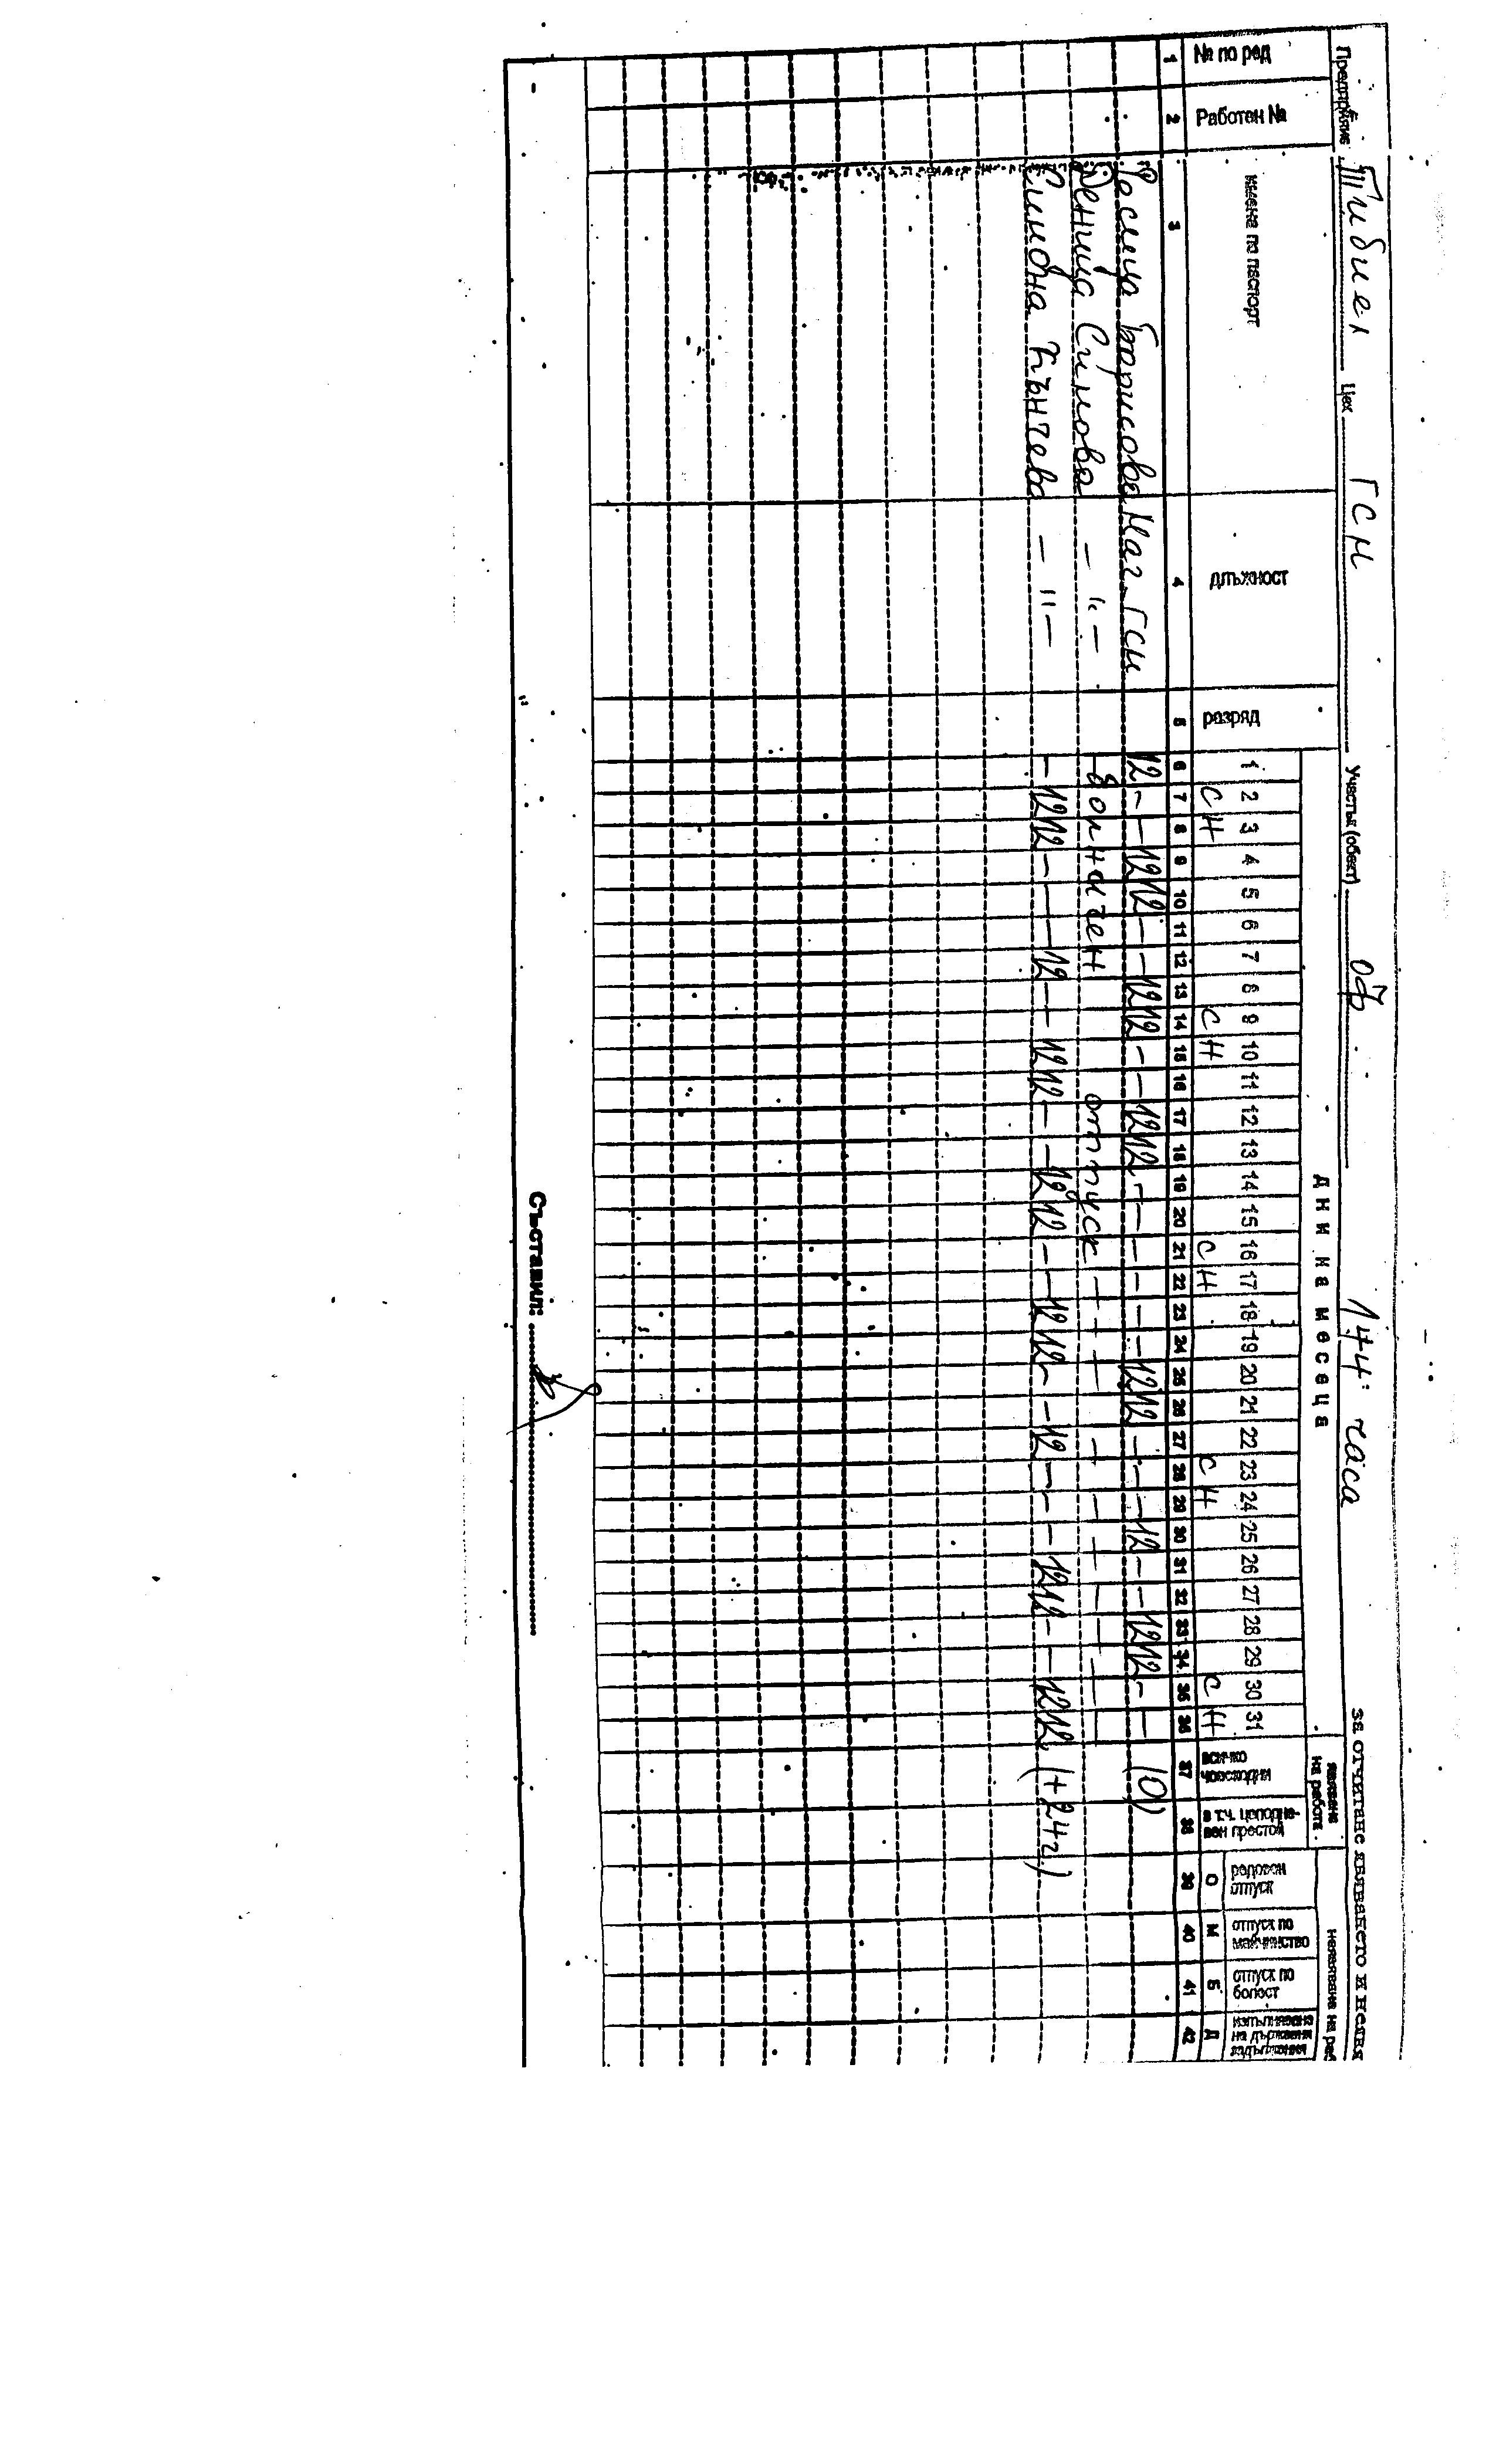 Предприятие Тибиел Цех ГСМ Участък (обект) ОФ 144 часа за отчитане явяването и неявя
№ по ред
Работен №
имена по паспорт
длъжност
разряд
дни на месеца
явявания на работа
неявявания на раб
1 2 3 4 5 6 7 8 9 10 11 12 13 14 15 16 17 18 19 20 21 22 23 24 25 26 27 28 29 30 31
С Н С Н С Н С Н С Н
всичко човекодни
в т.ч. целодневен престой
редовен отпуск
отпуск по майчинство
отпуск по болест
изпълнявана на държавни задължения
О М Б Д
1 2 3 4 5 6 7 8 9 10 11 12 13 14 15 16 17 18 19 20 21 22 23 24 25 26 27 28 29 30 31 32 33 34 35 36 37 38 39 40 41 42
Росица Борисова Маг. ГСМ 12 - - 12 12 - - 12 12 - - 12 12 - - - - - - 12 12 - - - 12 - - 12 12 - - (0)
Деница Симова - " - болничен отпуск - - - - - - - - - - - -
Симона Кънчева - " - - 12 12 - - - 12 - - 12 12 - - 12 12 - - 12 12 - - 12 - - - 12 12 - - 12 12 (+24ч.)
Съставил: